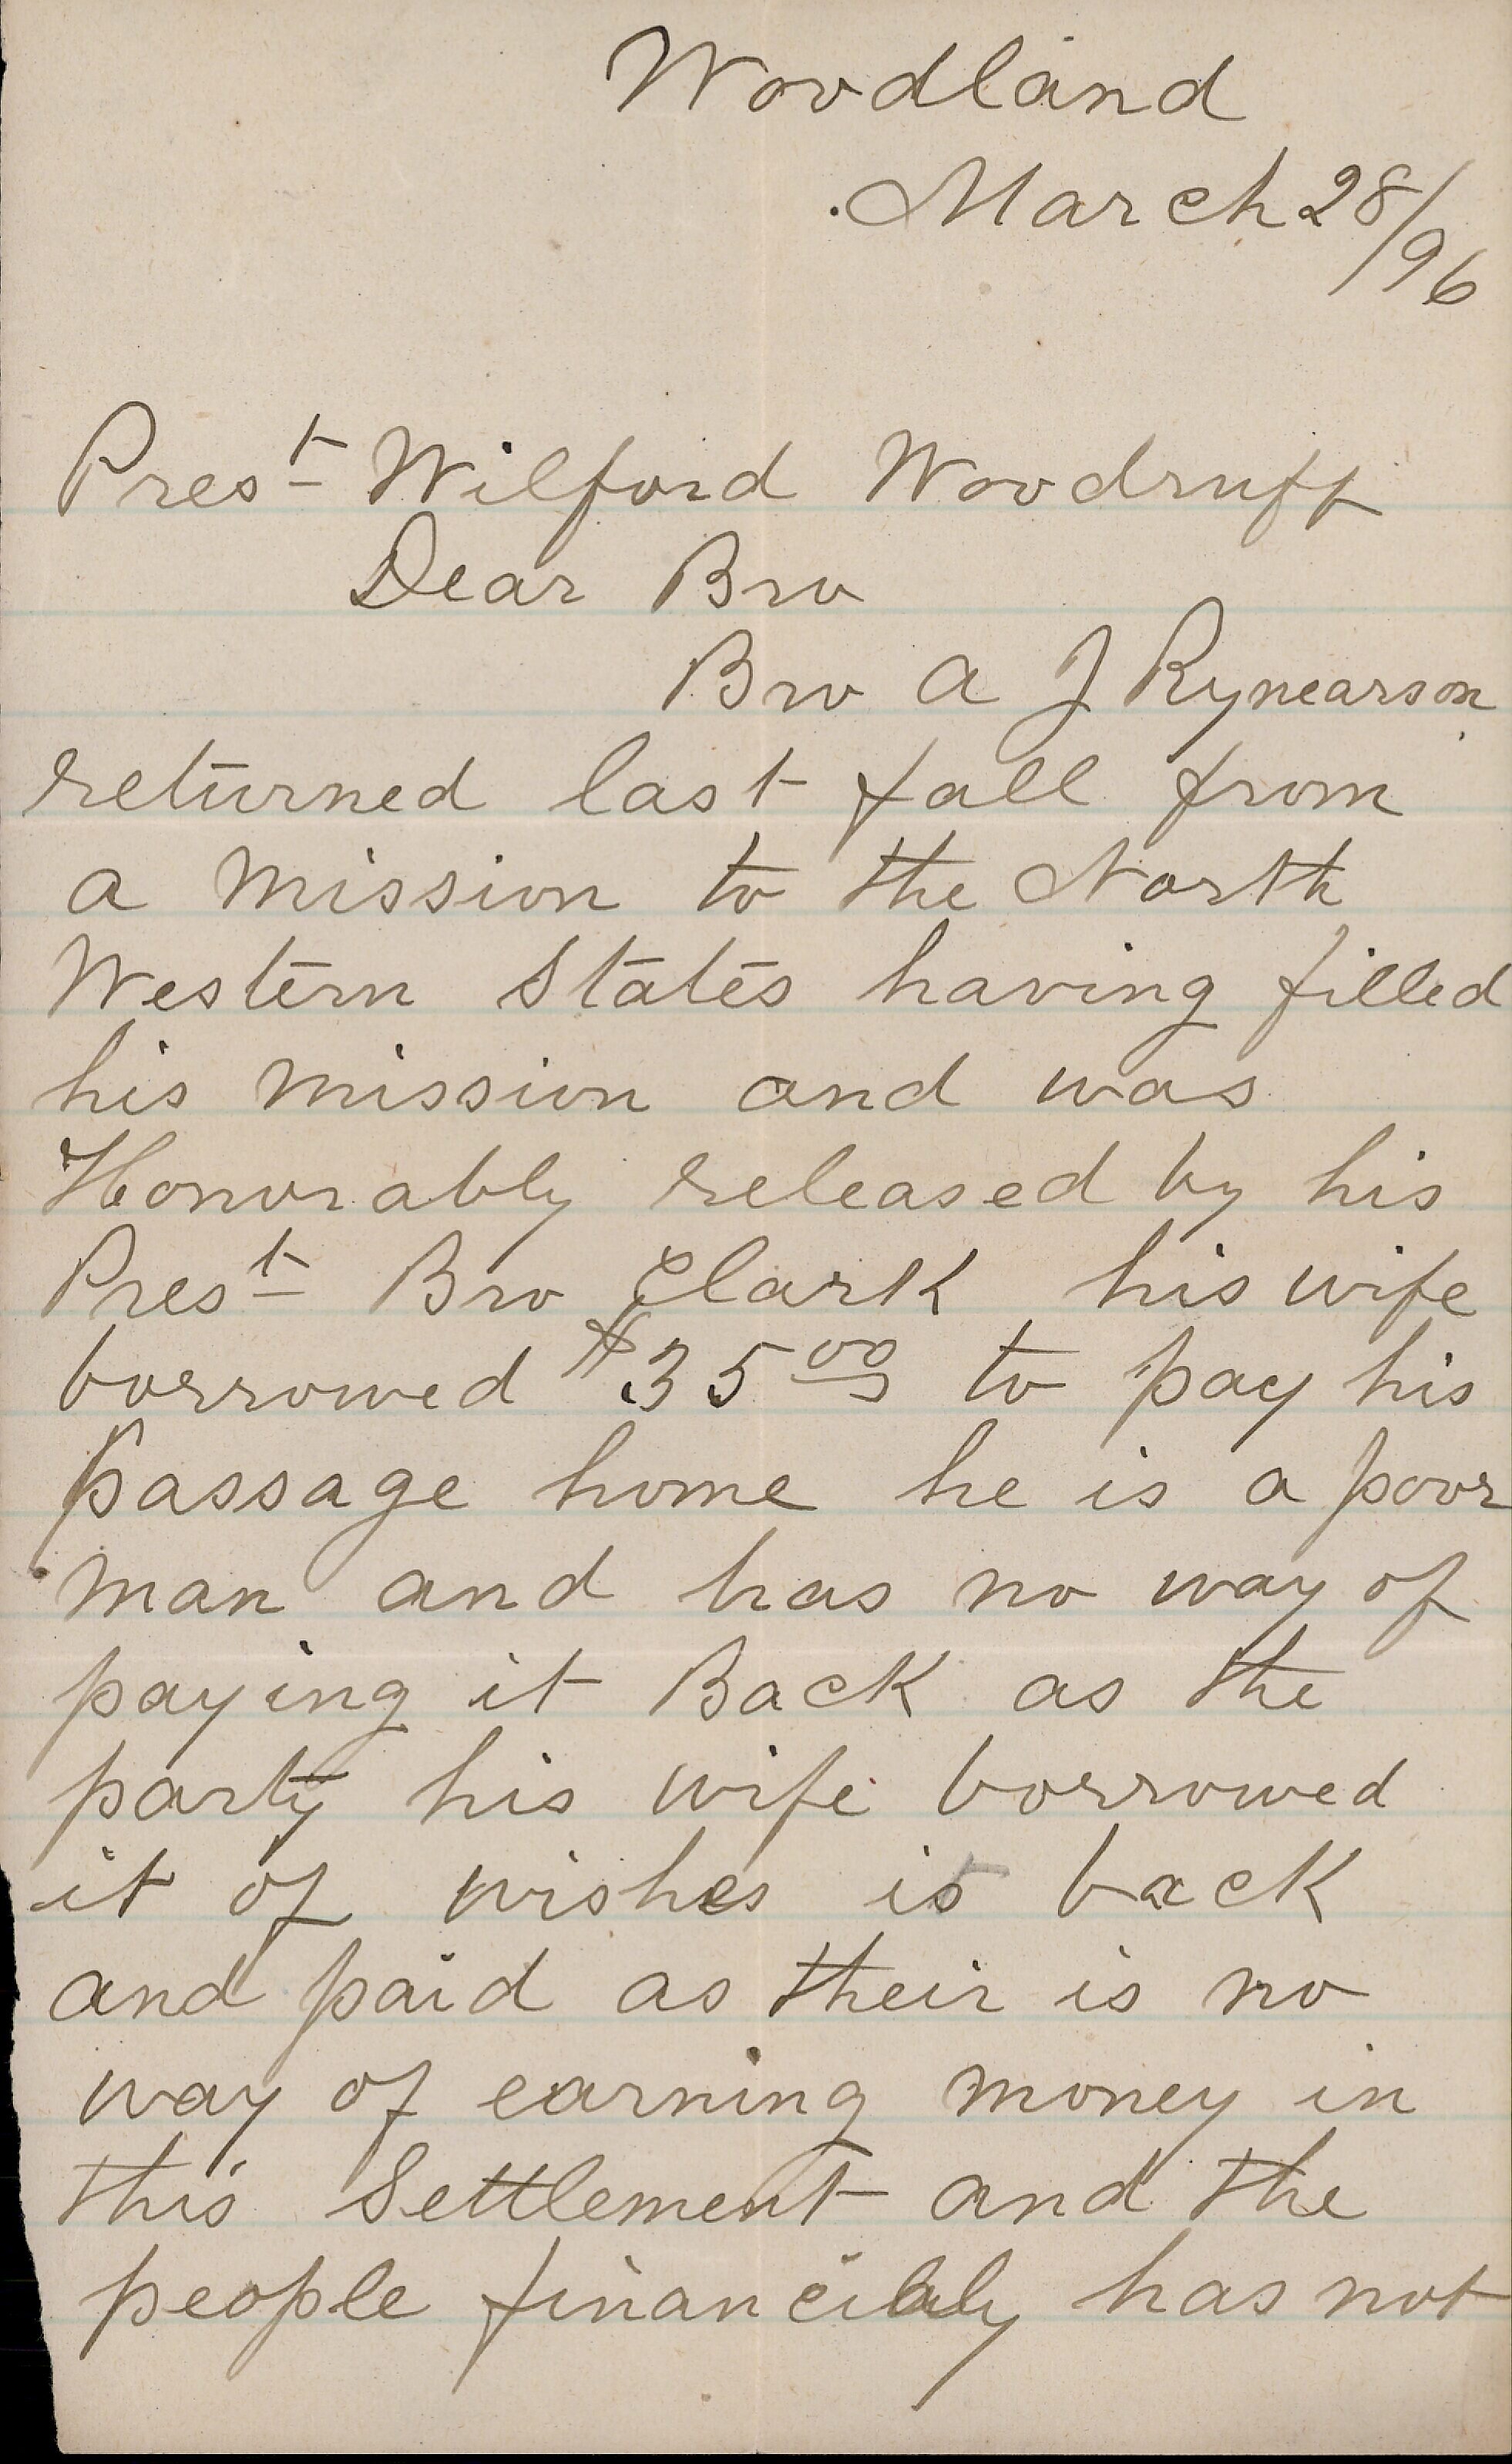 Woodland
March 28/96
Prest Wilford Woodruff
Dear Bro
Bro A J Rynearson
returned last fall from
a mission to the North
Western States having filled
his mission and was
Honorably released by his
Prest Bro Clark his wife
borrowed $35.00 to pay his
passage home he is a poor
man and has no way of
paying it Back as the
party his wife borrowed
it of wishes it back
and paid as their is no
way of earning money in
this Settlement and the
people financialy has not